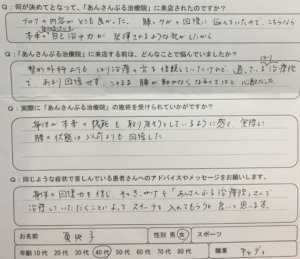 Q:何が決めてとなって、「あんさんぶる治療院」に来店されたのですか?
ブログの内容がとても良かった。膝のケガの回復に悩んでいたので、こちらなら
本来の自己治癒力が発揮されるような気がしたから
Q:「あんさんぶる治療院」に来店する前は、どんなことで悩んでいましたか?
整形外科よりもはり治療の方を信頼していたけれど、通っている治療院
で、あまり回復せず、このまま膝が動かなくなるのではと心配だった
Q:実際に「あんさんぶる治療院」の施術を受けられていかがですか?
身体が本来の機能を取り戻そうとしているように感じ、実際に
膝の状態は以前よりも回復した
Q:同じような症状で苦しんでいる患者さんへのアドバイスやメッセージをお願いします。
身体の回復力を信じ、その
「あんさんぶる治療院」さんで
治療していただくことによって スイッチを入れてもらうと良いと思います。
お名前
性別 男 女
スポーツ
年齢 10代 20代 30代 40代 50代 60代 70代 80代
職業
キャディ